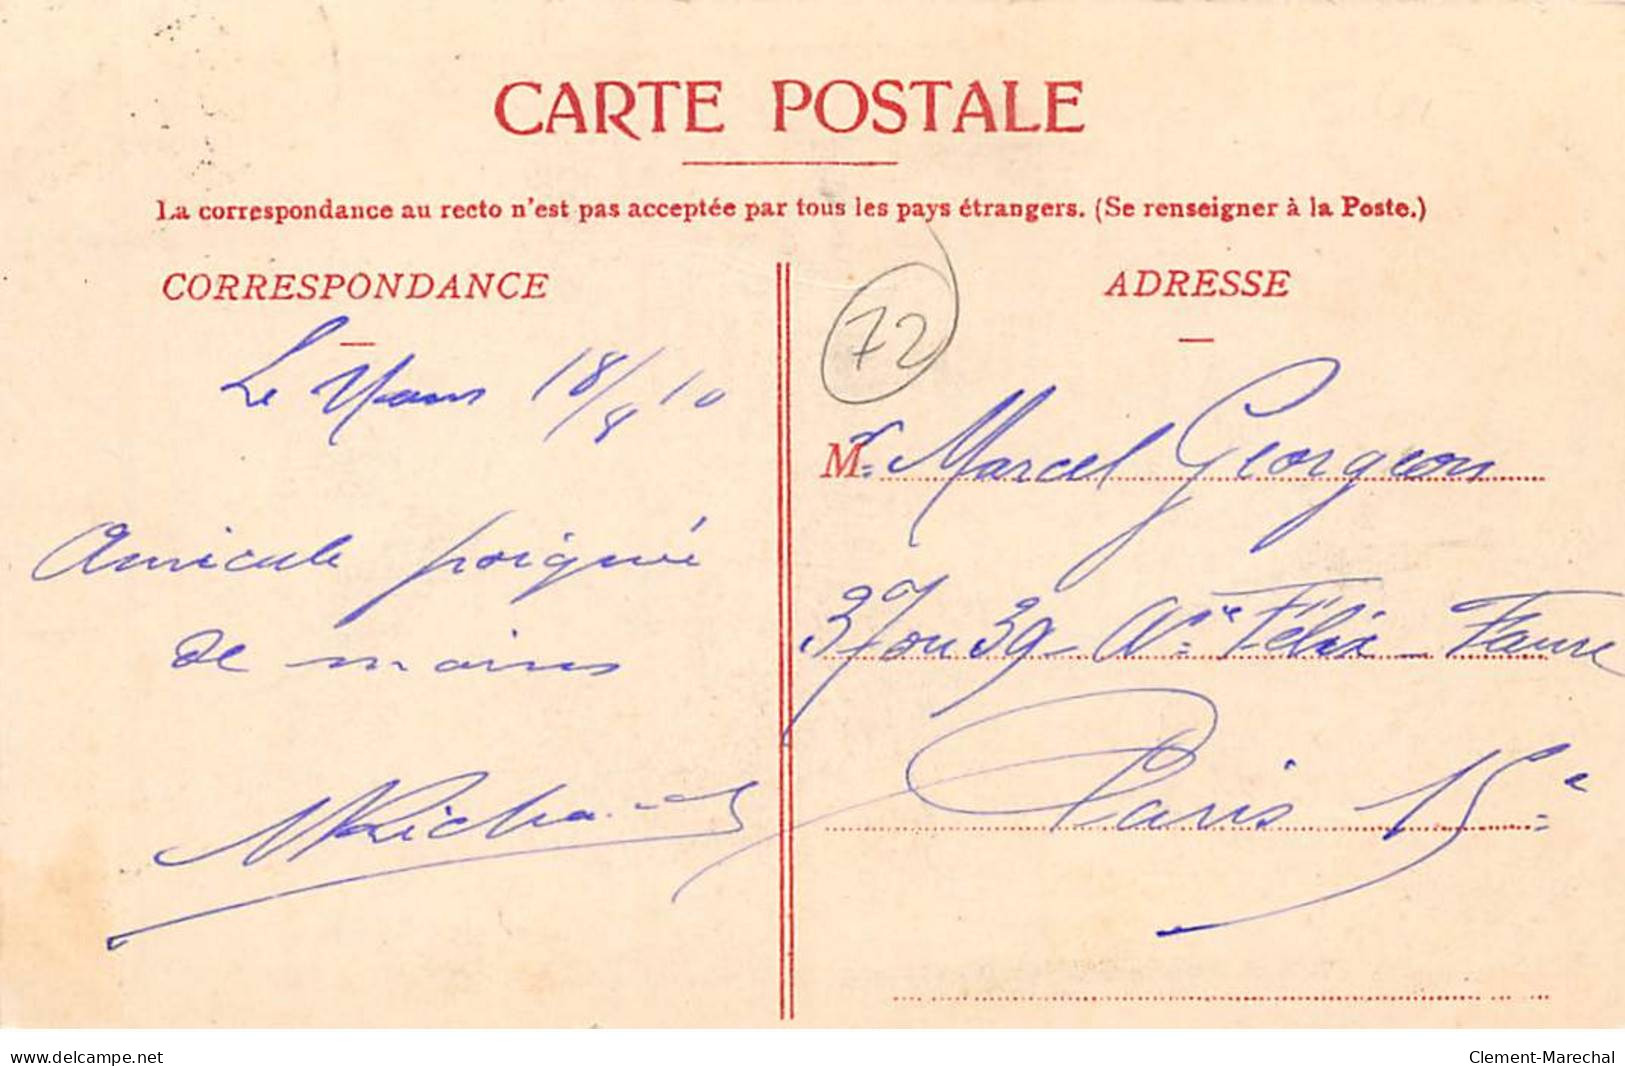 CARTE POSTALE
La correspondance au recto n'est pas acceptée par tous les pays étrangers. (Se renseigner à la Poste.)
CORRESPONDANCE
Le Mans 18/8 10
Amicale poignée
de mains
ADRESSE
72
Mr Marcel Georgeon
37 ou 39 Ave Félix-Faure
Paris 15e
www.delcampe.net
Clement-Marechal